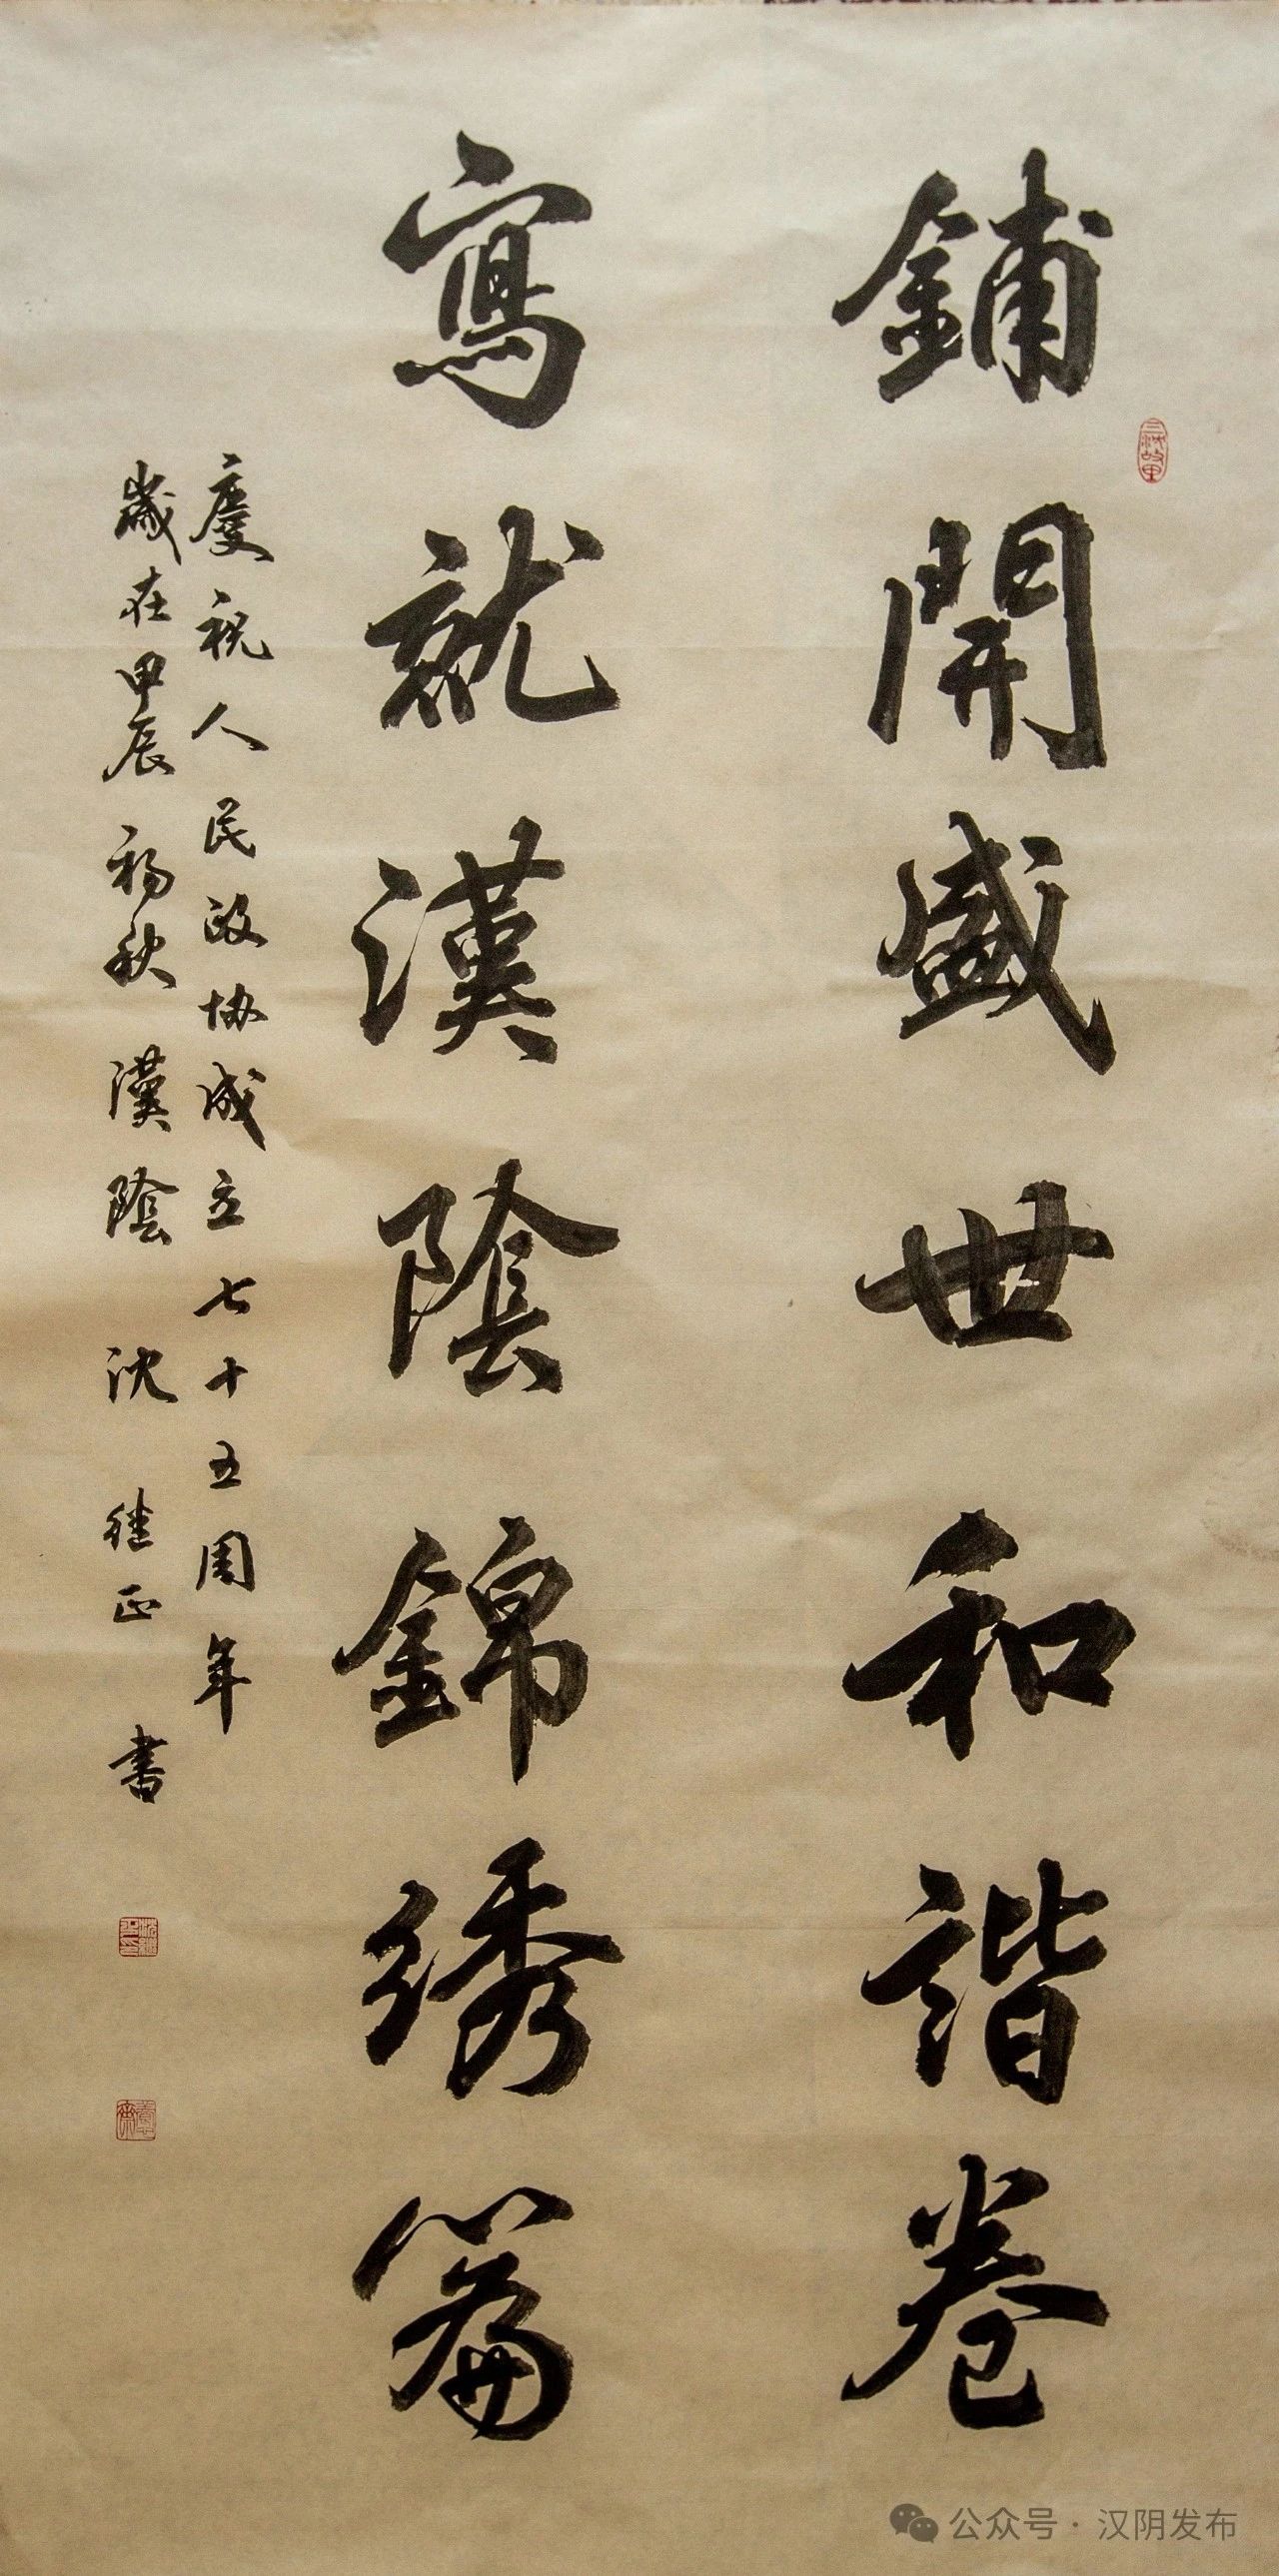 鋪開盛世和諧卷
寫就漢陰錦绣篇
慶祝人民政协成立七十五周年
歲在甲辰 楊秋 漢陰 沈继正 書
三沈故里
公众号 · 汉阴发布